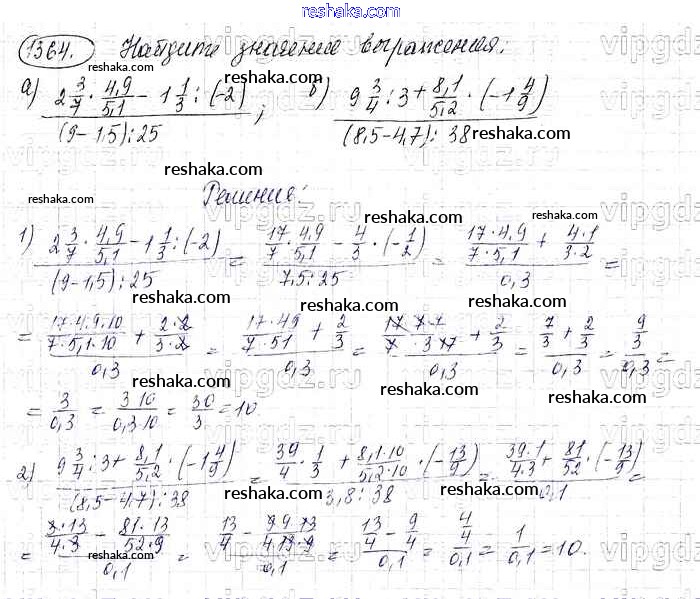 reshak.ru
1364. Найдите значение выражения:
а) (2 3/7 · 4,9/5,1 − 1 1/3 : (−2)) / ((9 − 1,5) : 25) ; б) (9 3/4 : 3 + 8,1/5,2 · (−1 4/9)) / ((8,5 − 4,7) : 38)
Решение:
1) (2 3/7 · 4,9/5,1 − 1 1/3 : (−2)) / ((9 − 1,5) : 25) = (17/7 · 4,9/5,1 − 4/3 · (−1/2)) / (7,5 : 25) = ((17 · 4,9)/(7 · 5,1) + (4 · 1)/(3 · 2)) / 0,3 =
= ((17 · 4,9 · 10)/(7 · 5,1 · 10) + (2 · 2)/(3 · 2)) / 0,3 = ((17 · 49)/(7 · 51) + 2/3) / 0,3 = ((17 · 7 · 7)/(7 · 3 · 17) + 2/3) / 0,3 = (7/3 + 2/3) / 0,3 = (9/3) / 0,3 =
= 3/0,3 = (3 · 10)/(0,3 · 10) = 30/3 = 10
2) (9 3/4 : 3 + 8,1/5,2 · (−1 4/9)) / ((8,5 − 4,7) : 38) = (39/4 · 1/3 + (8,1 · 10)/(5,2 · 10) · (−13/9)) / (3,8 : 38) = ((39 · 1)/(4 · 3) + 81/52 · (−13/9)) / 0,1 =
= ((3 · 13)/(4 · 3) − (81 · 13)/(52 · 9)) / 0,1 = (13/4 − (9 · 9 · 13)/(4 · 13 · 9)) / 0,1 = (13/4 − 9/4) / 0,1 = (4/4) / 0,1 = 1/0,1 = 10.